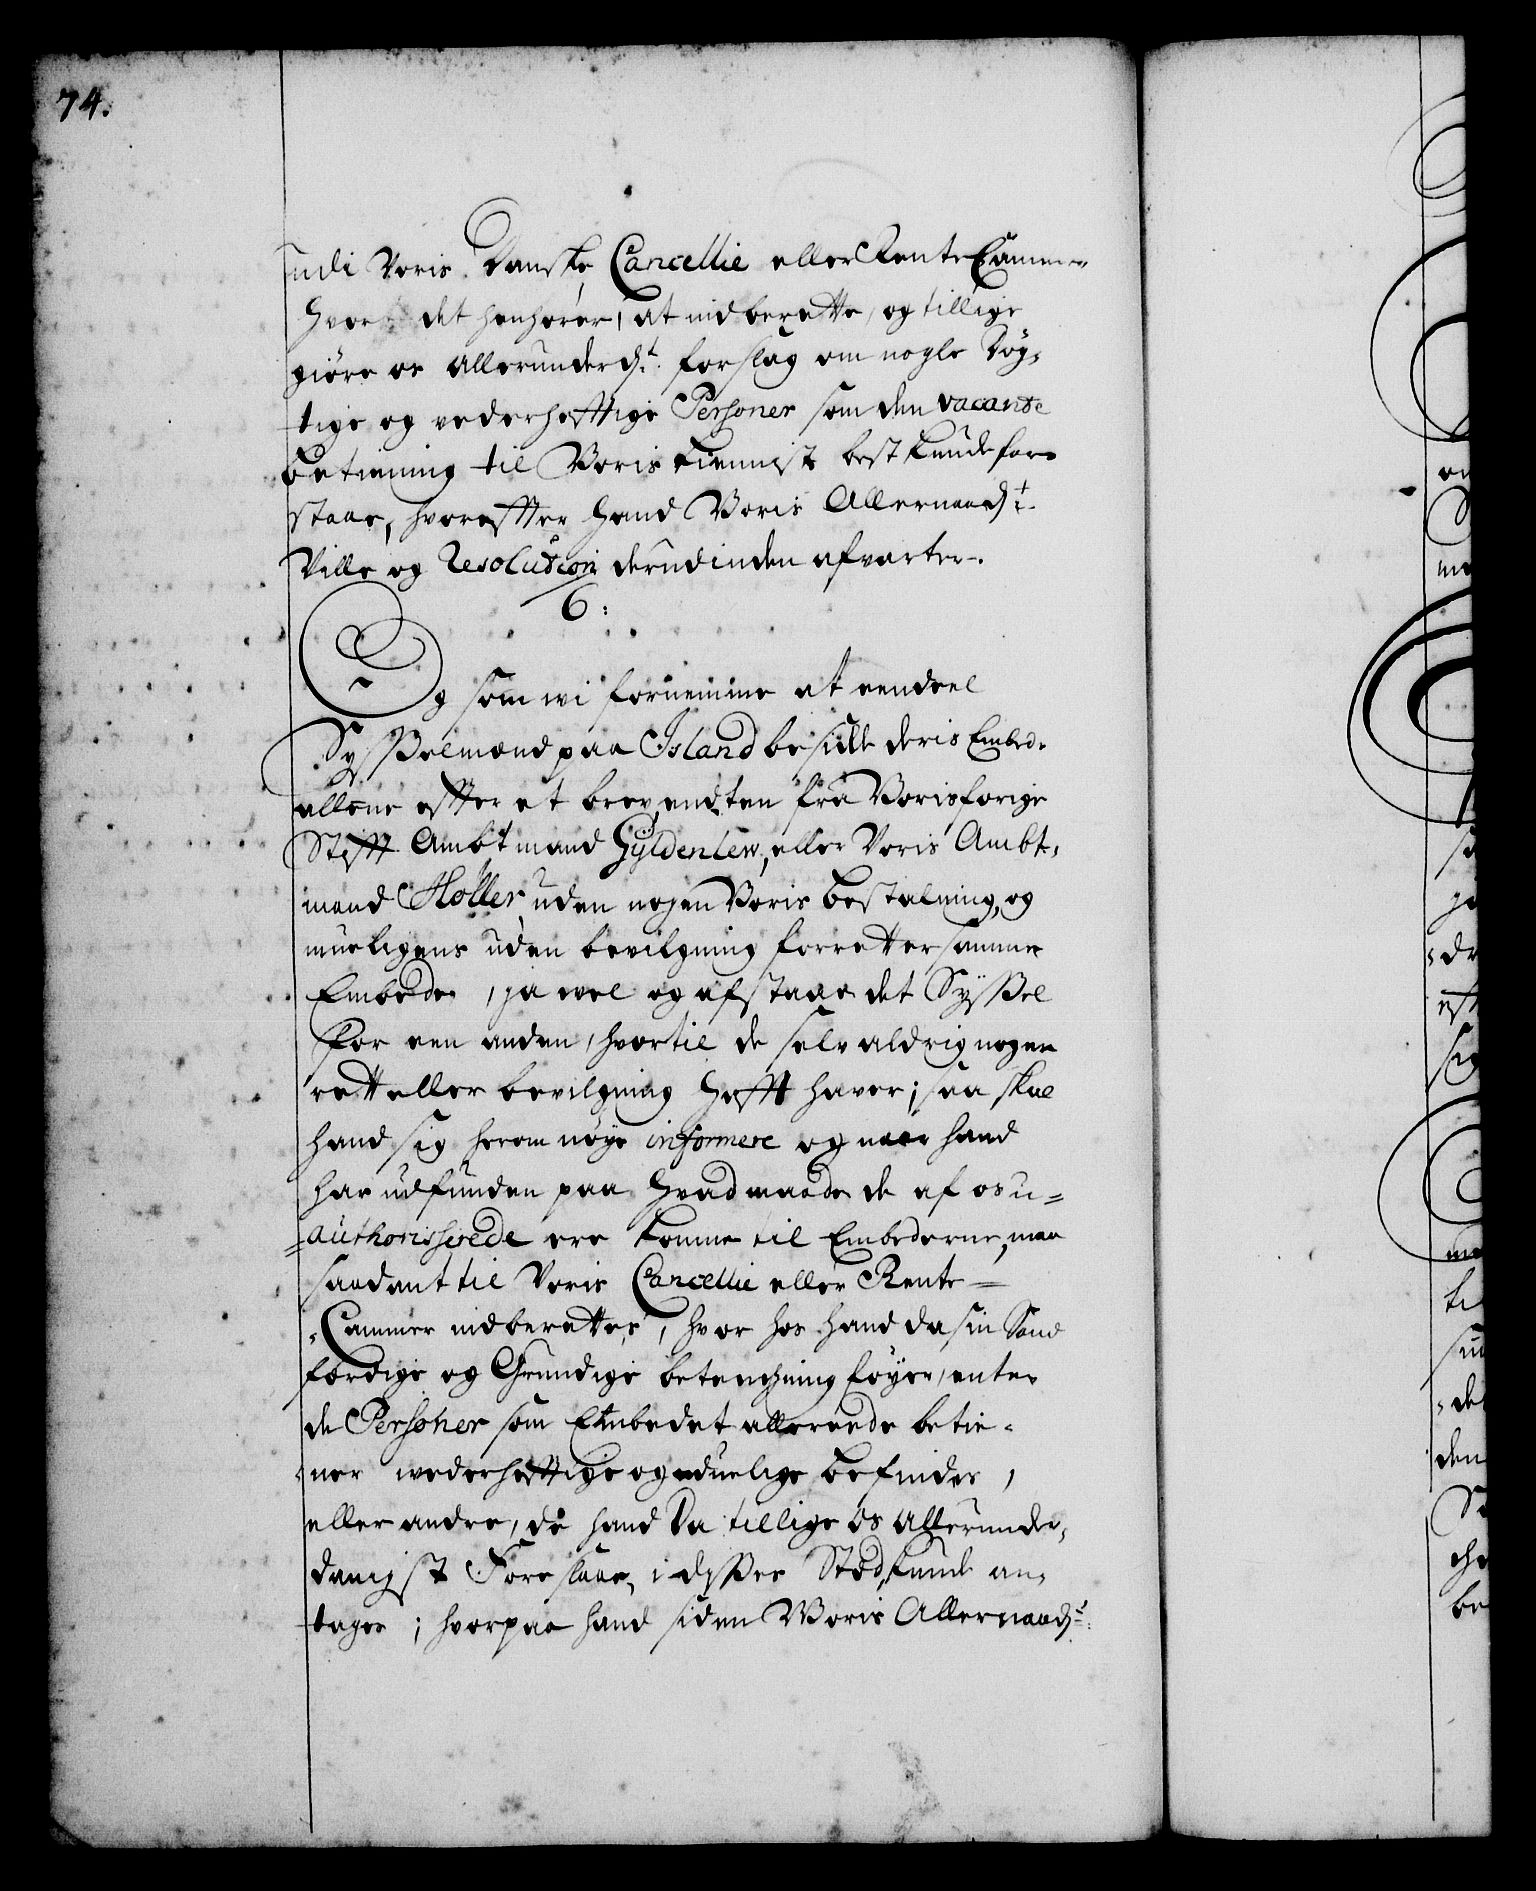 74.
udi Voris Danske Cancellie eller Rente Cammer
hvor det henhører, at indberette, og tillige
giøre os allerunderd.t forslag om nogle døg-
tige og vederhefftige Personer som den vacante
betiening til Voris tienniste best kunde fore
staae, hvoreffter hand Voris Allernaad.t
Ville og Resolution derudinden afvarter.
6:
Og som wi fornemme at eendeel
Sysselmænd paa Island besidde deris Embed-
allene effter et brev endten fra Voris forige
Stifft Ambtmand Gyldenlew, eller Voris Ambt-
mand Møller uden nogen Voris bestalning, og
mueligens uden bevilgning forretter samme
Embede, ja wel og afstaae det Syssel
for een anden, hvortil de selv aldrig nogen
rett eller bevilgning hafft haver; saa skal
hand sig herom nøye informere og naar hand
har udfunden paa hvad maade de af os u=
=authorisserede ere komne til Embederne, maa
saadant til Voris Cancellie eller Rente=
-Cammer indberettes, hvor hos hand da sin Sand
færdige og Grundige betenchning føyer, enten
de Personer som Embedet allereede betie-
-ner wederhefftige og duelige befindes,
eller andre, de hand Da tillige os allerunder-
danigst Foreslaae, i dysses Sted kunde an-
tages; hvorpaa hand siden Woris Allernaad.t